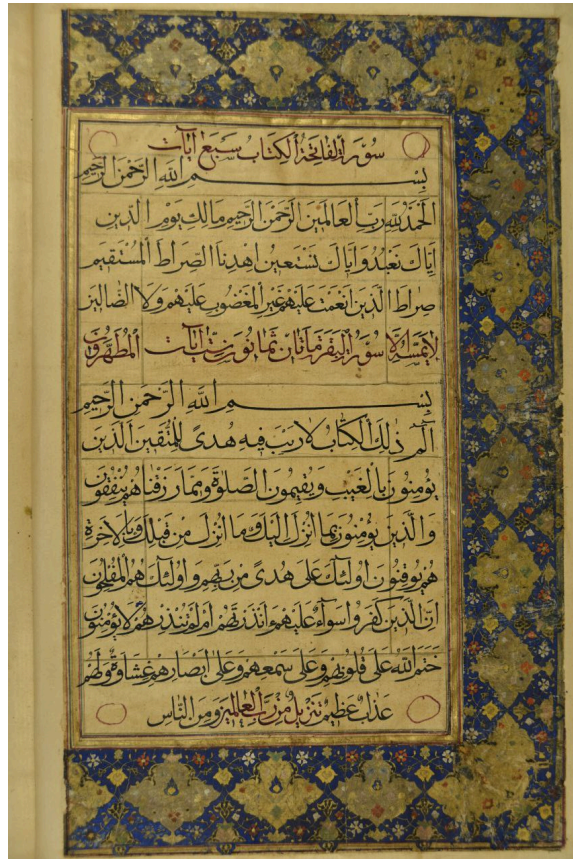 سورة الفاتحة الكتاب سبع آيات
بسم الله الرحمن الرحيم
الحمد لله رب العالمين الرحمن الرحيم مالك يوم الدين
اياك نعبد واياك نستعين اهدنا الصراط المستقيم
صراط الذين انعمت عليهم غير المغضوب عليهم ولا الضالين
لا يمسه الا سورة البقرة مأتان ثمانون ست آيات المطهرون
بسم الله الرحمن الرحيم
الم ذلك الكتاب لا ريب فيه هدى للمتقين الذين
يؤمنون بالغيب ويقيمون الصلوة ومما رزقناهم ينفقون
والذين يؤمنون بما انزل اليك وما انزل من قبلك وبالآخرة
هم يوقنون اولئك على هدى من ربهم واولئك هم المفلحون
ان الذين كفروا سواء عليهم ءانذرتهم ام لم تنذرهم لا يؤمنون
ختم الله على قلوبهم وعلى سمعهم وعلى ابصارهم غشاوة ولهم
عذاب عظيم تنزيل من رب العالمين ومن الناس